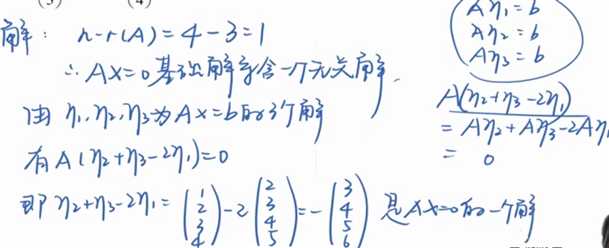 解： n-r(A)=4-3=1
∴ AX=0基础解系含一个无关解.
由 η₁,η₂,η₃为AX=b的3个解
有 A(η₂+η₃-2η₁)=0
即 η₂+η₃-2η₁=(1 2 3 4)-2(2 3 4 5)=-(3 4 5 6) 是AX=0的一个解
Aη₁=b
Aη₂=b
Aη₃=b
A(η₂+η₃-2η₁)
=Aη₂+Aη₃-2Aη
= 0